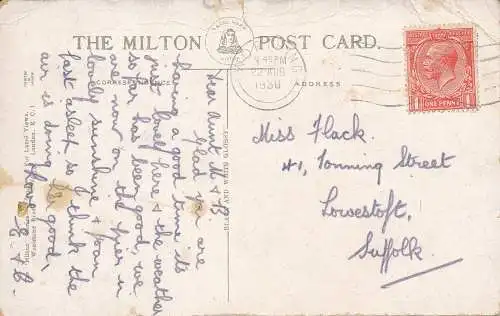 THE MILTON POST CARD.
CORRESPONDENCE
ADDRESS
22 AUG
1930
ONE PENNY
Dear Aunt M & B
Glad you are
having a good time its
just lovely here & the weather
so far has been good, we
are now on the pier in
lovely sunshine & Joan
fast asleep so I think the
air is doing her good,
Miss Flack.
41, Tonning Street
Lowestoft.
Suffolk.
London, E.C.1